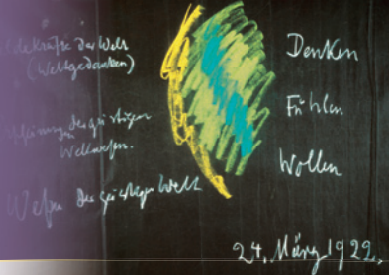 ldekräfte der Welt
(Weltgedanken)
der geistigen
Weltwesen.
Wesen der geistigen Welt
Denken
Fühlen
Wollen
24. März 1922.